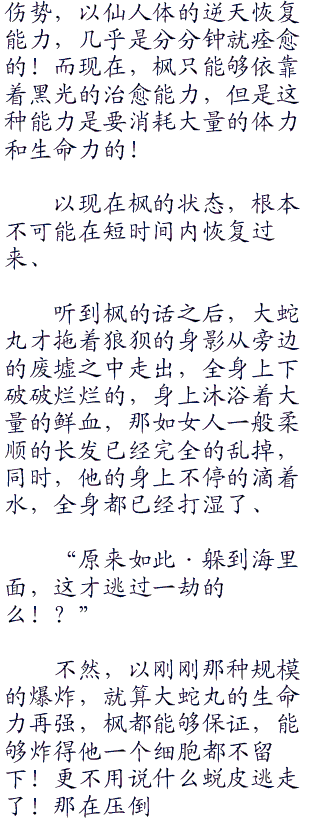 伤势，以仙人体的逆天恢复
能力，几乎是分分钟就痊愈
的！而现在，枫只能够依靠
着黑光的治愈能力，但是这
种能力是要消耗大量的体力
和生命力的！
以现在枫的状态，根本
不可能在短时间内恢复过
来、
听到枫的话之后，大蛇
丸才拖着狼狈的身影从旁边
的废墟之中走出，全身上下
破破烂烂的，身上沐浴着大
量的鲜血，那如女人一般柔
顺的长发已经完全的乱掉，
同时，他的身上不停的滴着
水，全身都已经打湿了、
“原来如此·躲到海里
面，这才逃过一劫的
么！？”
不然，以刚刚那种规模
的爆炸，就算大蛇丸的生命
力再强，枫都能够保证，能
够炸得他一个细胞都不留
下！更不用说什么蜕皮逃走
了！那在压倒